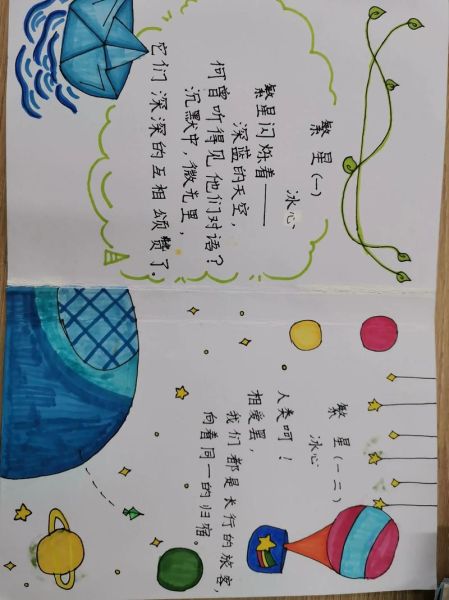 繁星(一)
冰心
繁星闪烁着——
深蓝的天空,
何曾听得见他们对语?
沉默中,微光里,
它们深深的互相颂赞了。
繁星(一二)
冰心
人类呵!
相爱罢,
我们都是长行的旅客,
向着同一的归宿。